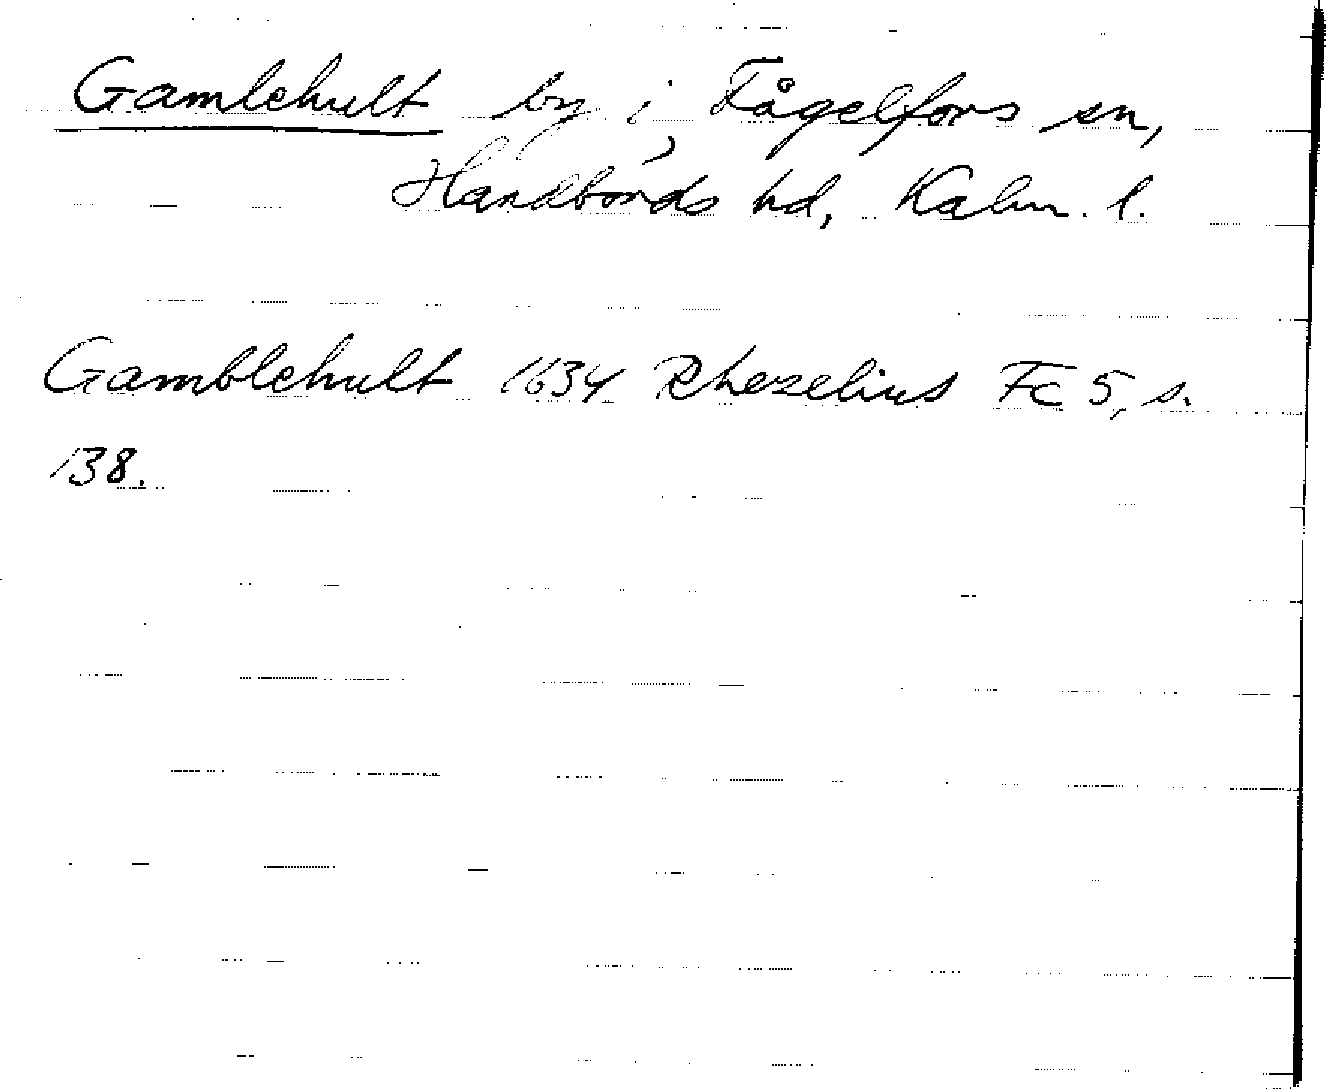 Gamlehult by i Fågelfors sn,
Handbörds hd, Kalm. l.
Gamblehult 1634 Rhezelius Fc 5, s.
138.